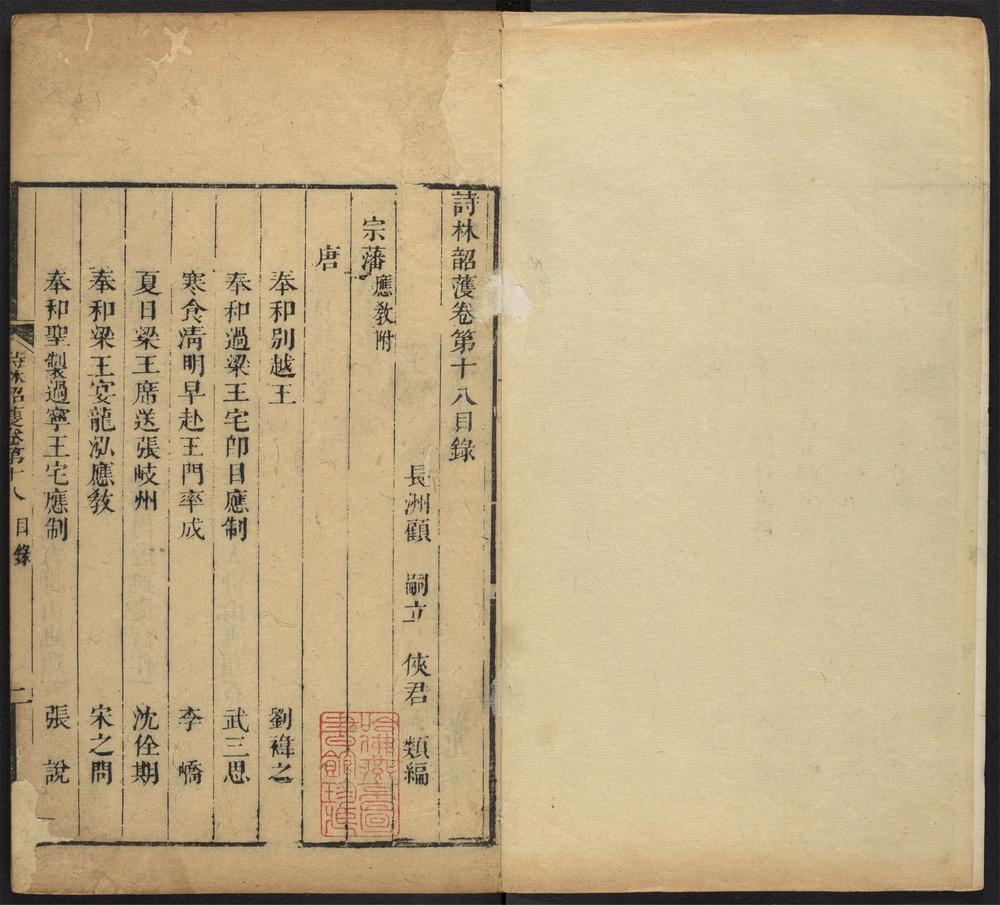 詩林韶濩卷第十八目錄
長洲顧 嗣立 俠君 類編
宗藩應教附
唐
奉和別越王 劉禕之
奉和過梁王宅即目應制 武三思
寒食清明早赴王門率成 李嶠
夏日梁王席送張岐州 沈佺期
奉和梁王宴龍泓應教 宋之問
奉和聖製過寧王宅應制 張說
詩林韶濩卷第十八 目錄 一
哈佛燕京圖書館珍藏